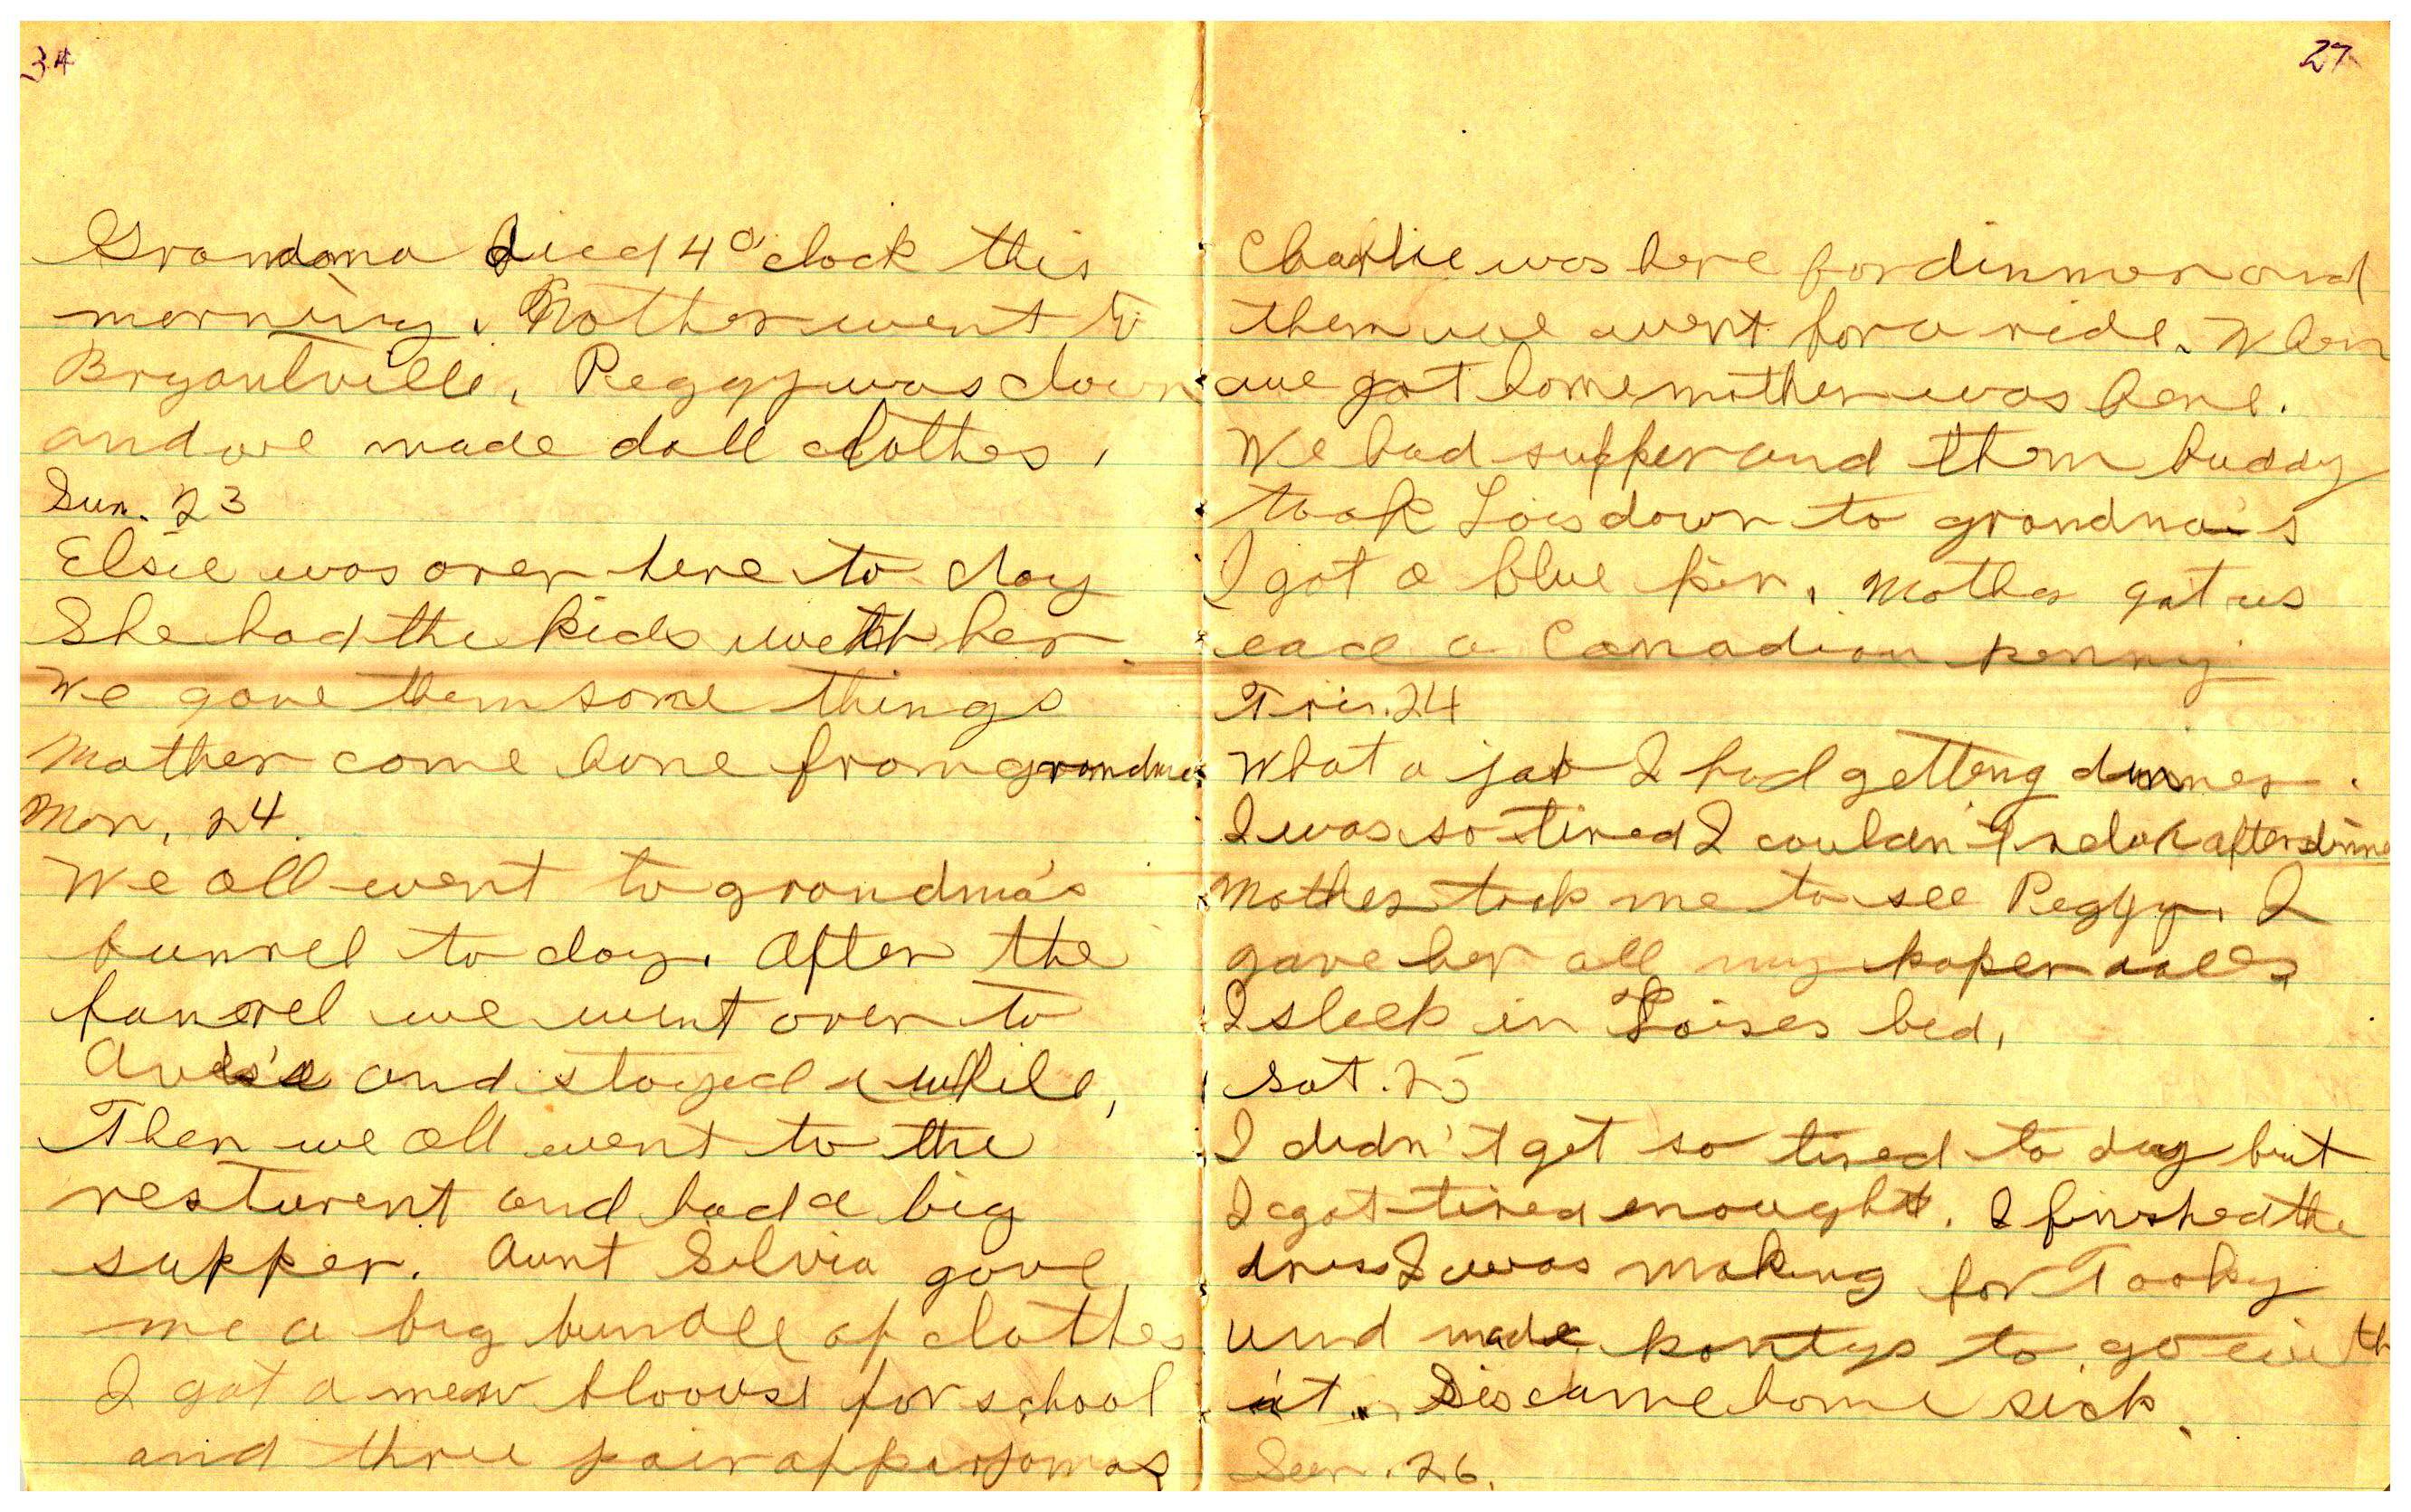 34
Grandma died 4 o'clock this
morning. Mother went to
Bryantville. Peggy was down
and we made doll clothes.
Sun. 23
Elsie was over here to day
She had the kids with her.
We gave them some things
Mother come home from grandmas
Mon. 24.
We all went to grandma's
funrel to day. After the
funerel we went over to
Avis's and stayed a while,
Then we all went to the
resturent and had a big
supper. Aunt Silvia gave
me a big bundle of clothes
I got a new blouse for school
and three pair of perjamas
27
Charlie was here for dinner and
then we went for a ride. When
we got home mother was here.
We had supper and then buddy
took Lois down to grandma's
I got a blue pin. Mother got us
each a Canadian penny
Fri. 24
What a job I had getting dinner.
I was so tired I couldn't relax after dinner
Mother took me to see Peggy. I
gave her all my paper dolls
I sleep in Loises bed.
Sat. 25
I didn't get so tired to day but
I got tired enought. I finished the
dress I was making for Tooky
and made pantys to go with
it. Sis came home sick.
Sun. 26.